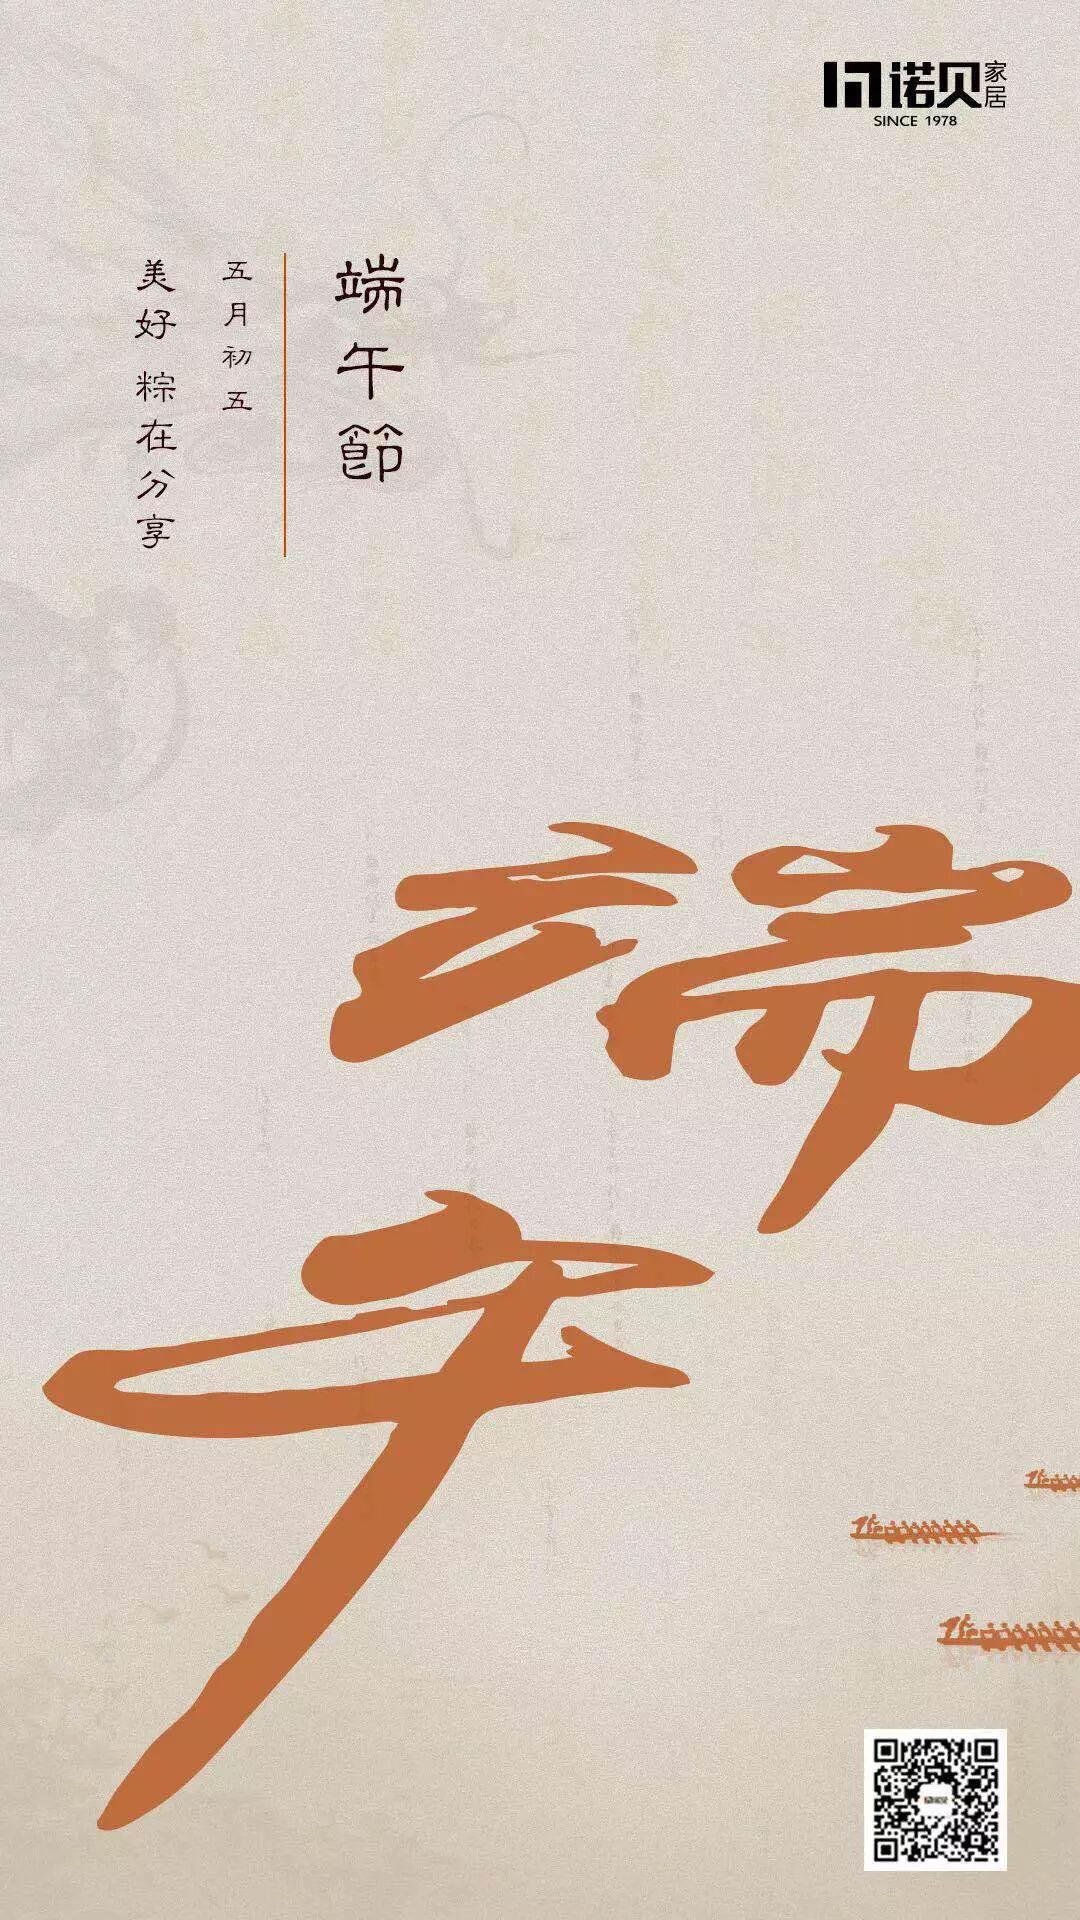 诺贝家居
SINCE 1978
端午節
五月初五
美好 粽在分享
端午